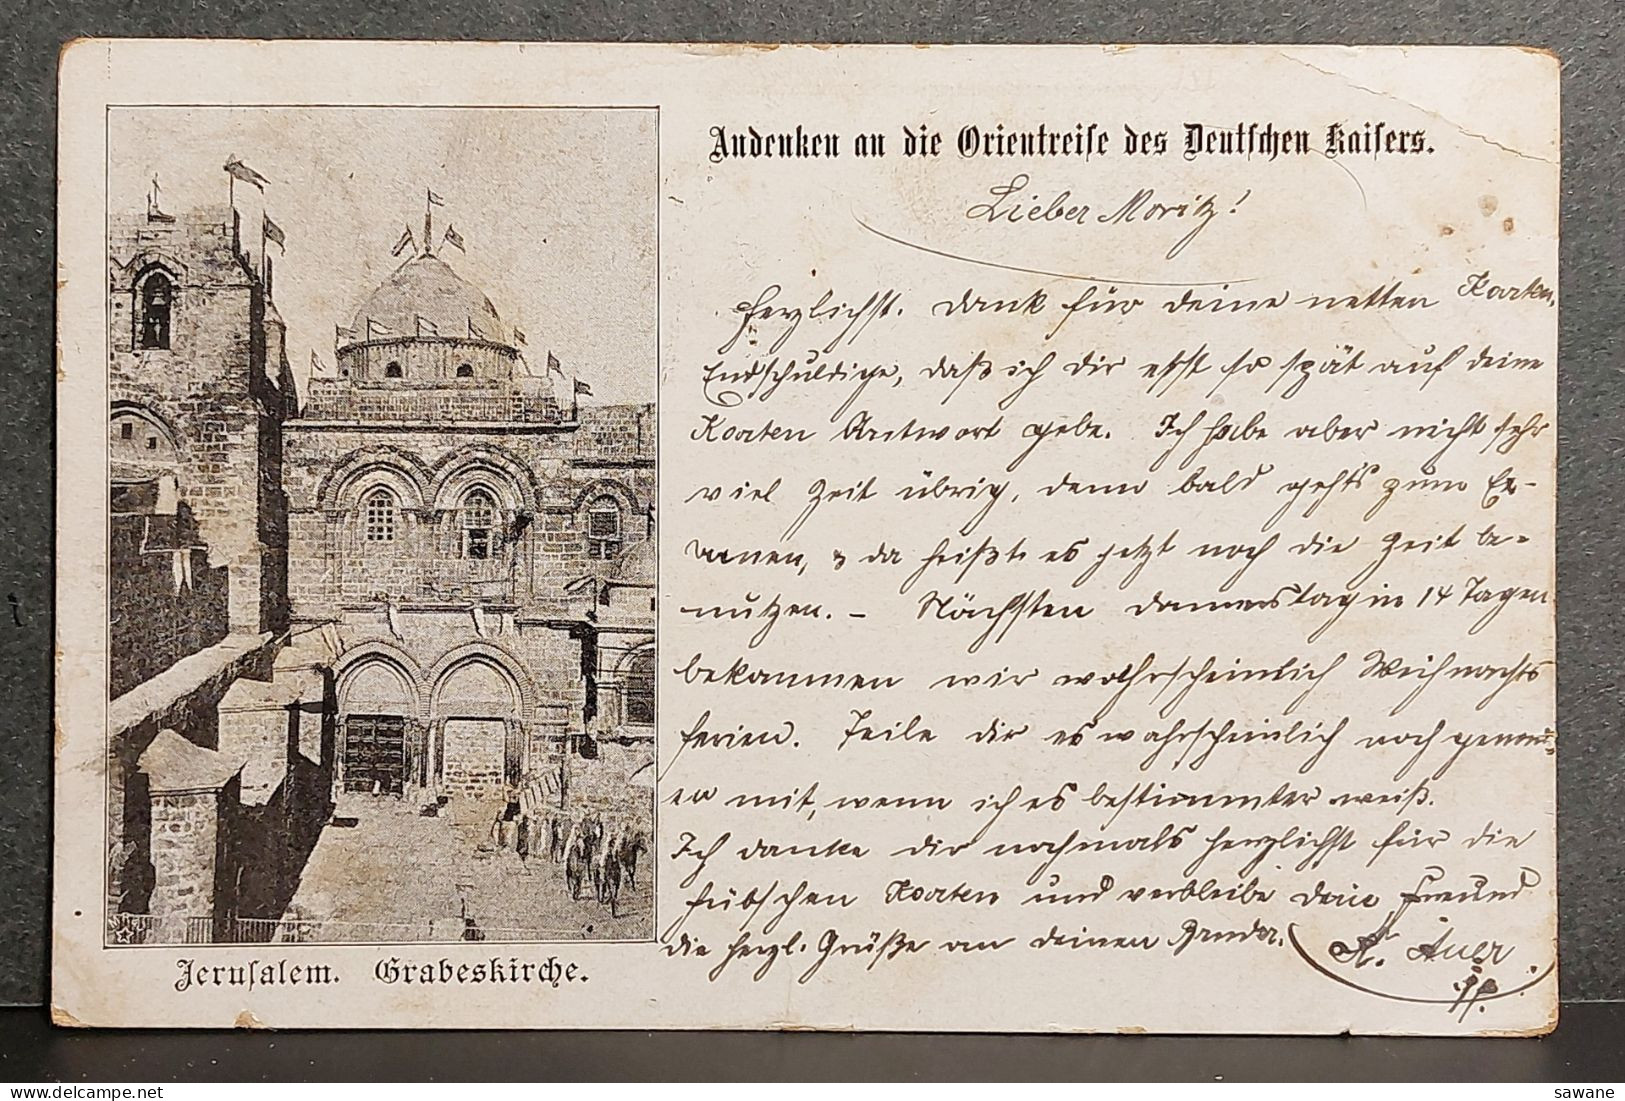 Andenken an die Orientreise des Deutschen Kaisers.
Lieber Moritz!
Herzlichst. Dank für deine netten Karten.
Endschuldige, daß ich dir erst so spät auf deine
Karten Antwort gebe. Ich habe aber nicht sehr
viel Zeit übrig, denn bald gehts zum Ex-
amen, & da heißt es jetzt noch die Zeit be-
nutzen. – Nächsten Donnerstag in 14 Tagen
bekommen wir wahrscheinlich Weihnachts
ferien. Teile dir es wahrscheinlich noch genau-
er mit, wenn ich es bestimmter weiß.
Ich danke dir nochmals herzlichst für die
hübschen Karten und verbleibe dein Freund
die herzl. Grüße an deinen Bruder. A. Auer
Jerusalem. Grabeskirche.
sawane